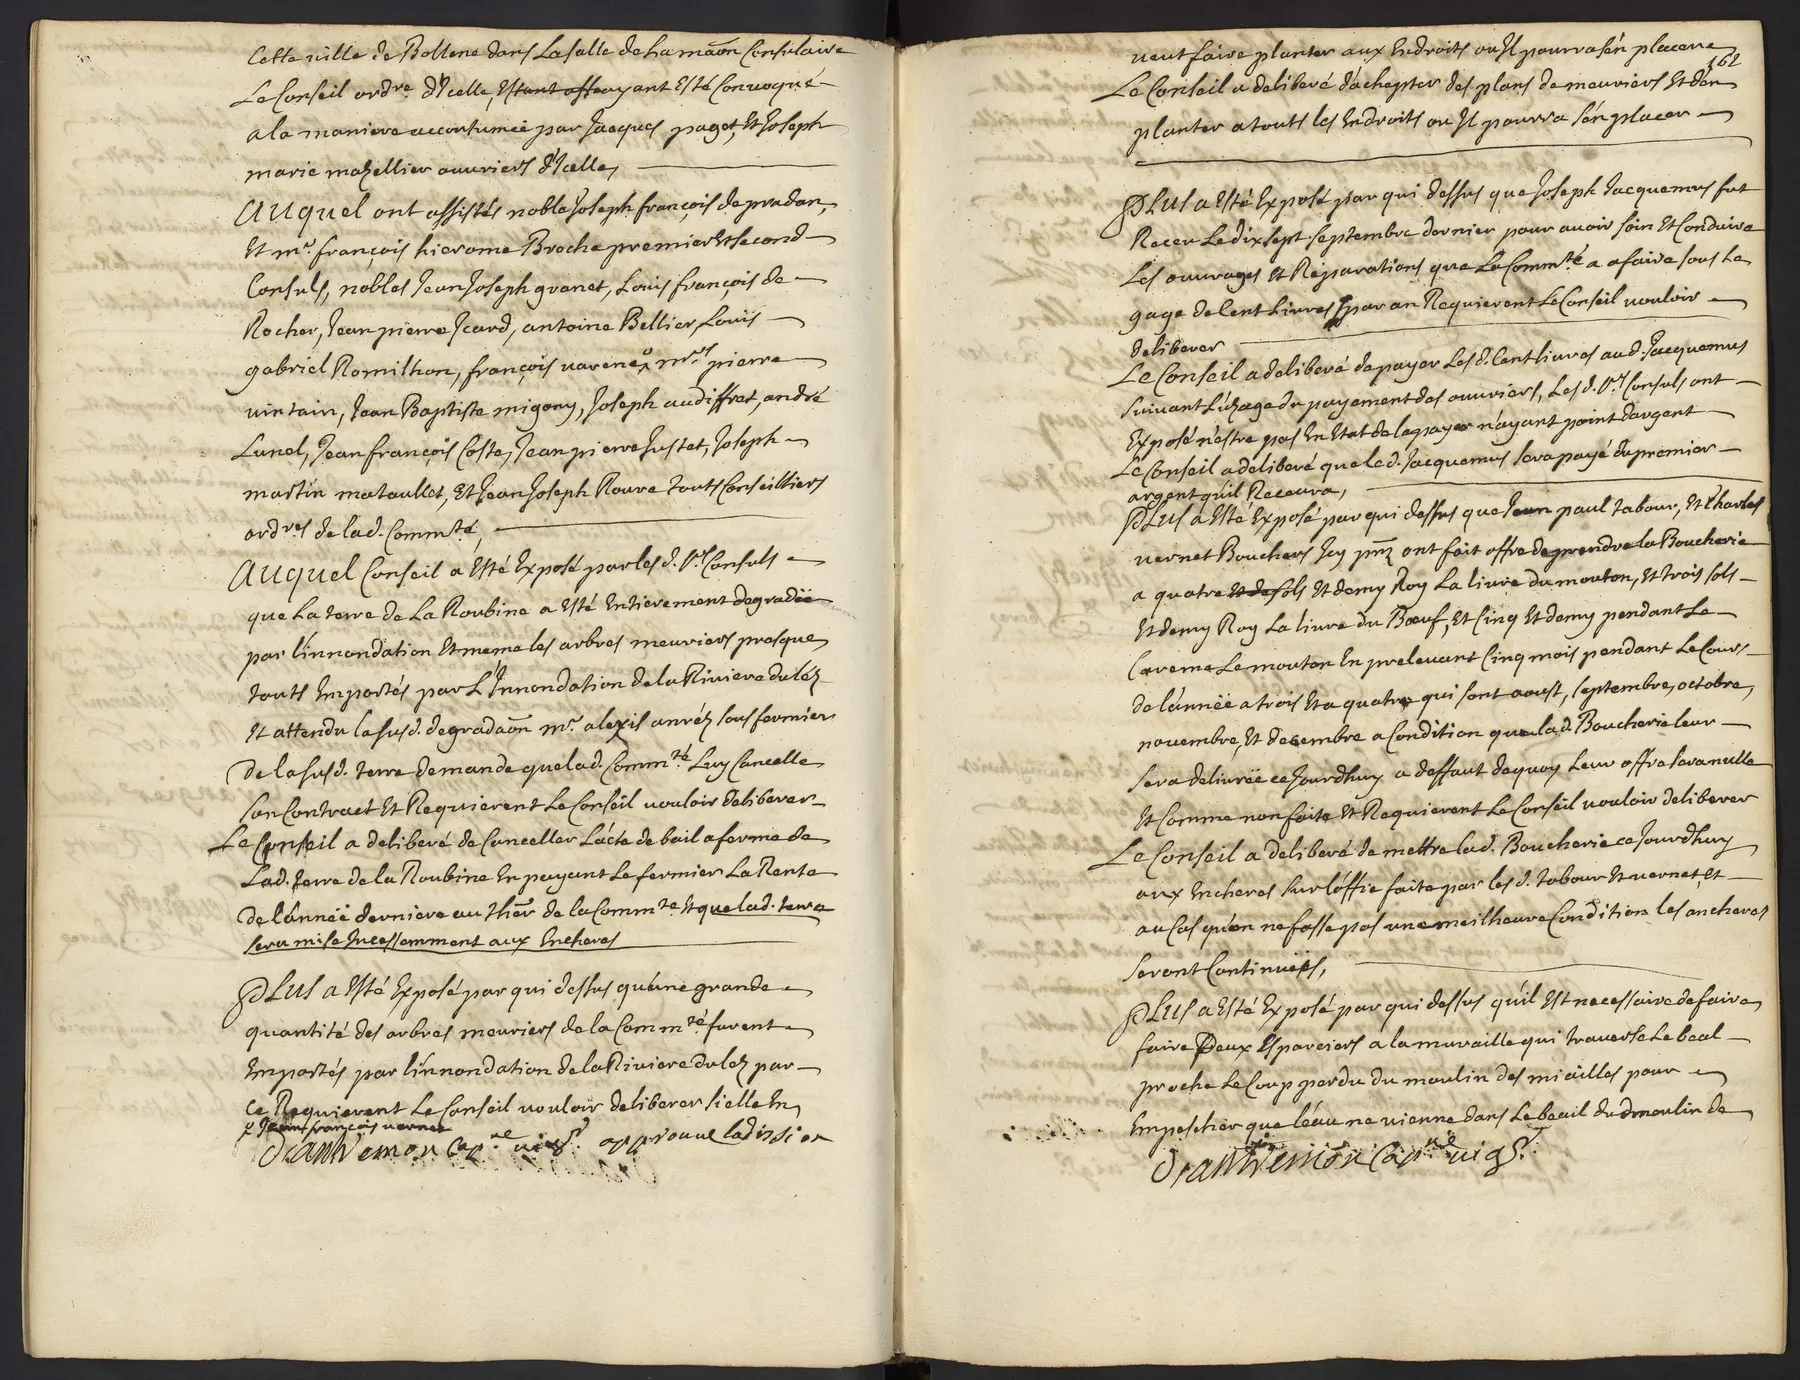 Cette ville de Bollene dans La salle de La maōn Consulaire
Le Conseil ordre. d'Icelle, Estant assayant Esté Convoqué
a la maniere accoutumée par Jacques paget, Et Joseph
marie mazellier ouvriers d'Icelle,
AUquel ont assistés noble Joseph françois de pradan,
Et mr. françois hierome Broche premier Et second
Consuls, nobles Jean Joseph granet, Louis françois de
Rocher, Jean pierre Icard, antoine Bellier, Louis
gabriel Romilhon, françois varene, mrs. pierre
vintain, Jean Baptiste migony, Joseph audiffret, andré
Lunel, Jean françois Coste, Jean pierre Justet, Joseph
martin mataullet, Et Jean Joseph Roure touts Conseilliers
ordres de lad. Commté,
AUQUEL Conseil a Esté Exposé par les d. Srs Consuls
que La terre de La Roubine a Esté Entierement degradëe
par l'innondation Et meme les arbres meuriers presque
touts Emportés par L'Innondation de la Riviere du léz
Et attendu la susd. degradaōn mr. alexis anréz sous fermier
De la susd. terre demande que lad. Commté. Luy Cancelle
son Contract Et Requierent Le Conseil vouloir deliberer
Le Conseil a deliberé de Canceller L'acte de bail a ferme de
Lad. terre de la Roubine En payant Le fermier La Rente
de l'annëë derniere au thier de la Commté Et que lad. terre
sera mise Incessemment aux Encheres
PLUS a Esté Exposé par qui dessus qu'une grande
quantité des arbres meuriers de la Commté. furent
Emportés par l'innondation de la Riviere du léz par
ce Requierent Le Conseil vouloir deliberer si elle En
x Jean françois varene
Drantremon Capne vigr. approuve ladission
veut faire planter aux Endroits ou Il pourra s'én placene
362
Le Conseil a deliberé d'achepter des plans de meuriers Et d'en
planter a touts les Endroits ou Il pourra s'én placer
PLUS a Esté Exposé par qui dessus que Joseph Jacquemus fut
Receu Le dix sept septembre dernier pour avoir soin Et Conduire
Les ouvrages Et Reparations que La Commté a a faire sous Le
gage de Cent Livres par an Requierent Le Conseil vouloir
deliberer
Le Conseil a deliberé de payer Les d. Cent livres aud. Jacquemus
suivant L'uzage du payement des ouvriers, Les d. Srs Consuls ont
Exposé n'estre pas En Etat de le payer n'ayant point d'argent
Le Conseil a deliberé que led. Jacquemus sera payé du premier
argent qu'il Recevra,
PLUS a Esté Exposé par qui dessus que Jean paul tabour, Et Charles
vernet Bouchers Icy pnz ont fait offre de prendre la Boucherie
a quatre Et de sols Et demy Roy La livre du mouton, Et trois sols
Et demy Roy La livre du Bœuf, Et Cinq Et demy pendant Le
Careme Le mouton En prelevant Cinq mois pendant Le Cours
de l'annëë a trois Et a quatre qui sont aoust, septembre, octobre,
novembre, Et decembre a Condition que lad. Boucherie leur
sera delivrëe ce Jourd'huy a deffaut dequoy Leur offre sera nulle
Et Comme non faite Et Requierent Le Conseil vouloir deliberer
Le Conseil a deliberé de mettre lad. Boucherie ce Jourd'huy
aux Encheres sur l'offre faite par les d. tabour Et vernet, Et
au Cas qu'on ne fasse pas une meilheure Condition les encheres
seront Continuëes,
PLUS a Esté Exposé par qui dessus qu'il Est necessaire de faire
faire Deux Esparciers a la muraille qui traverse Le beal
proche Le Coup perdu du moulin des miailles pour
Empescher que l'éau ne vienne dans Le beail du dmoulin de
Drantremon Capne vigr.